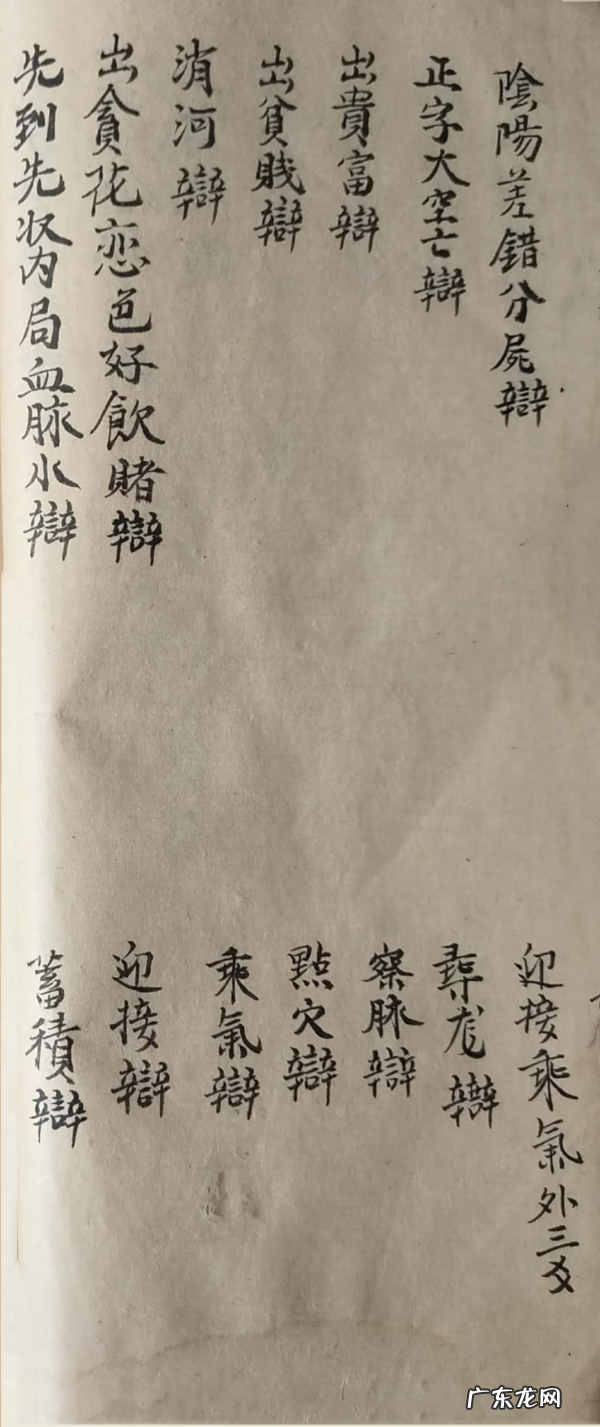 陰陽差錯分屍辯
正字大空亡辯
出貴富辯
出貧賎辯
消河辯
出貪花恋色好飲賭辯
先到先收内局血脉水辯
迎接乘氣外三爻
尋龙辯
察脉辯
點穴辯
乘氣辯
迎接辯
蓄積辯
广东龙网